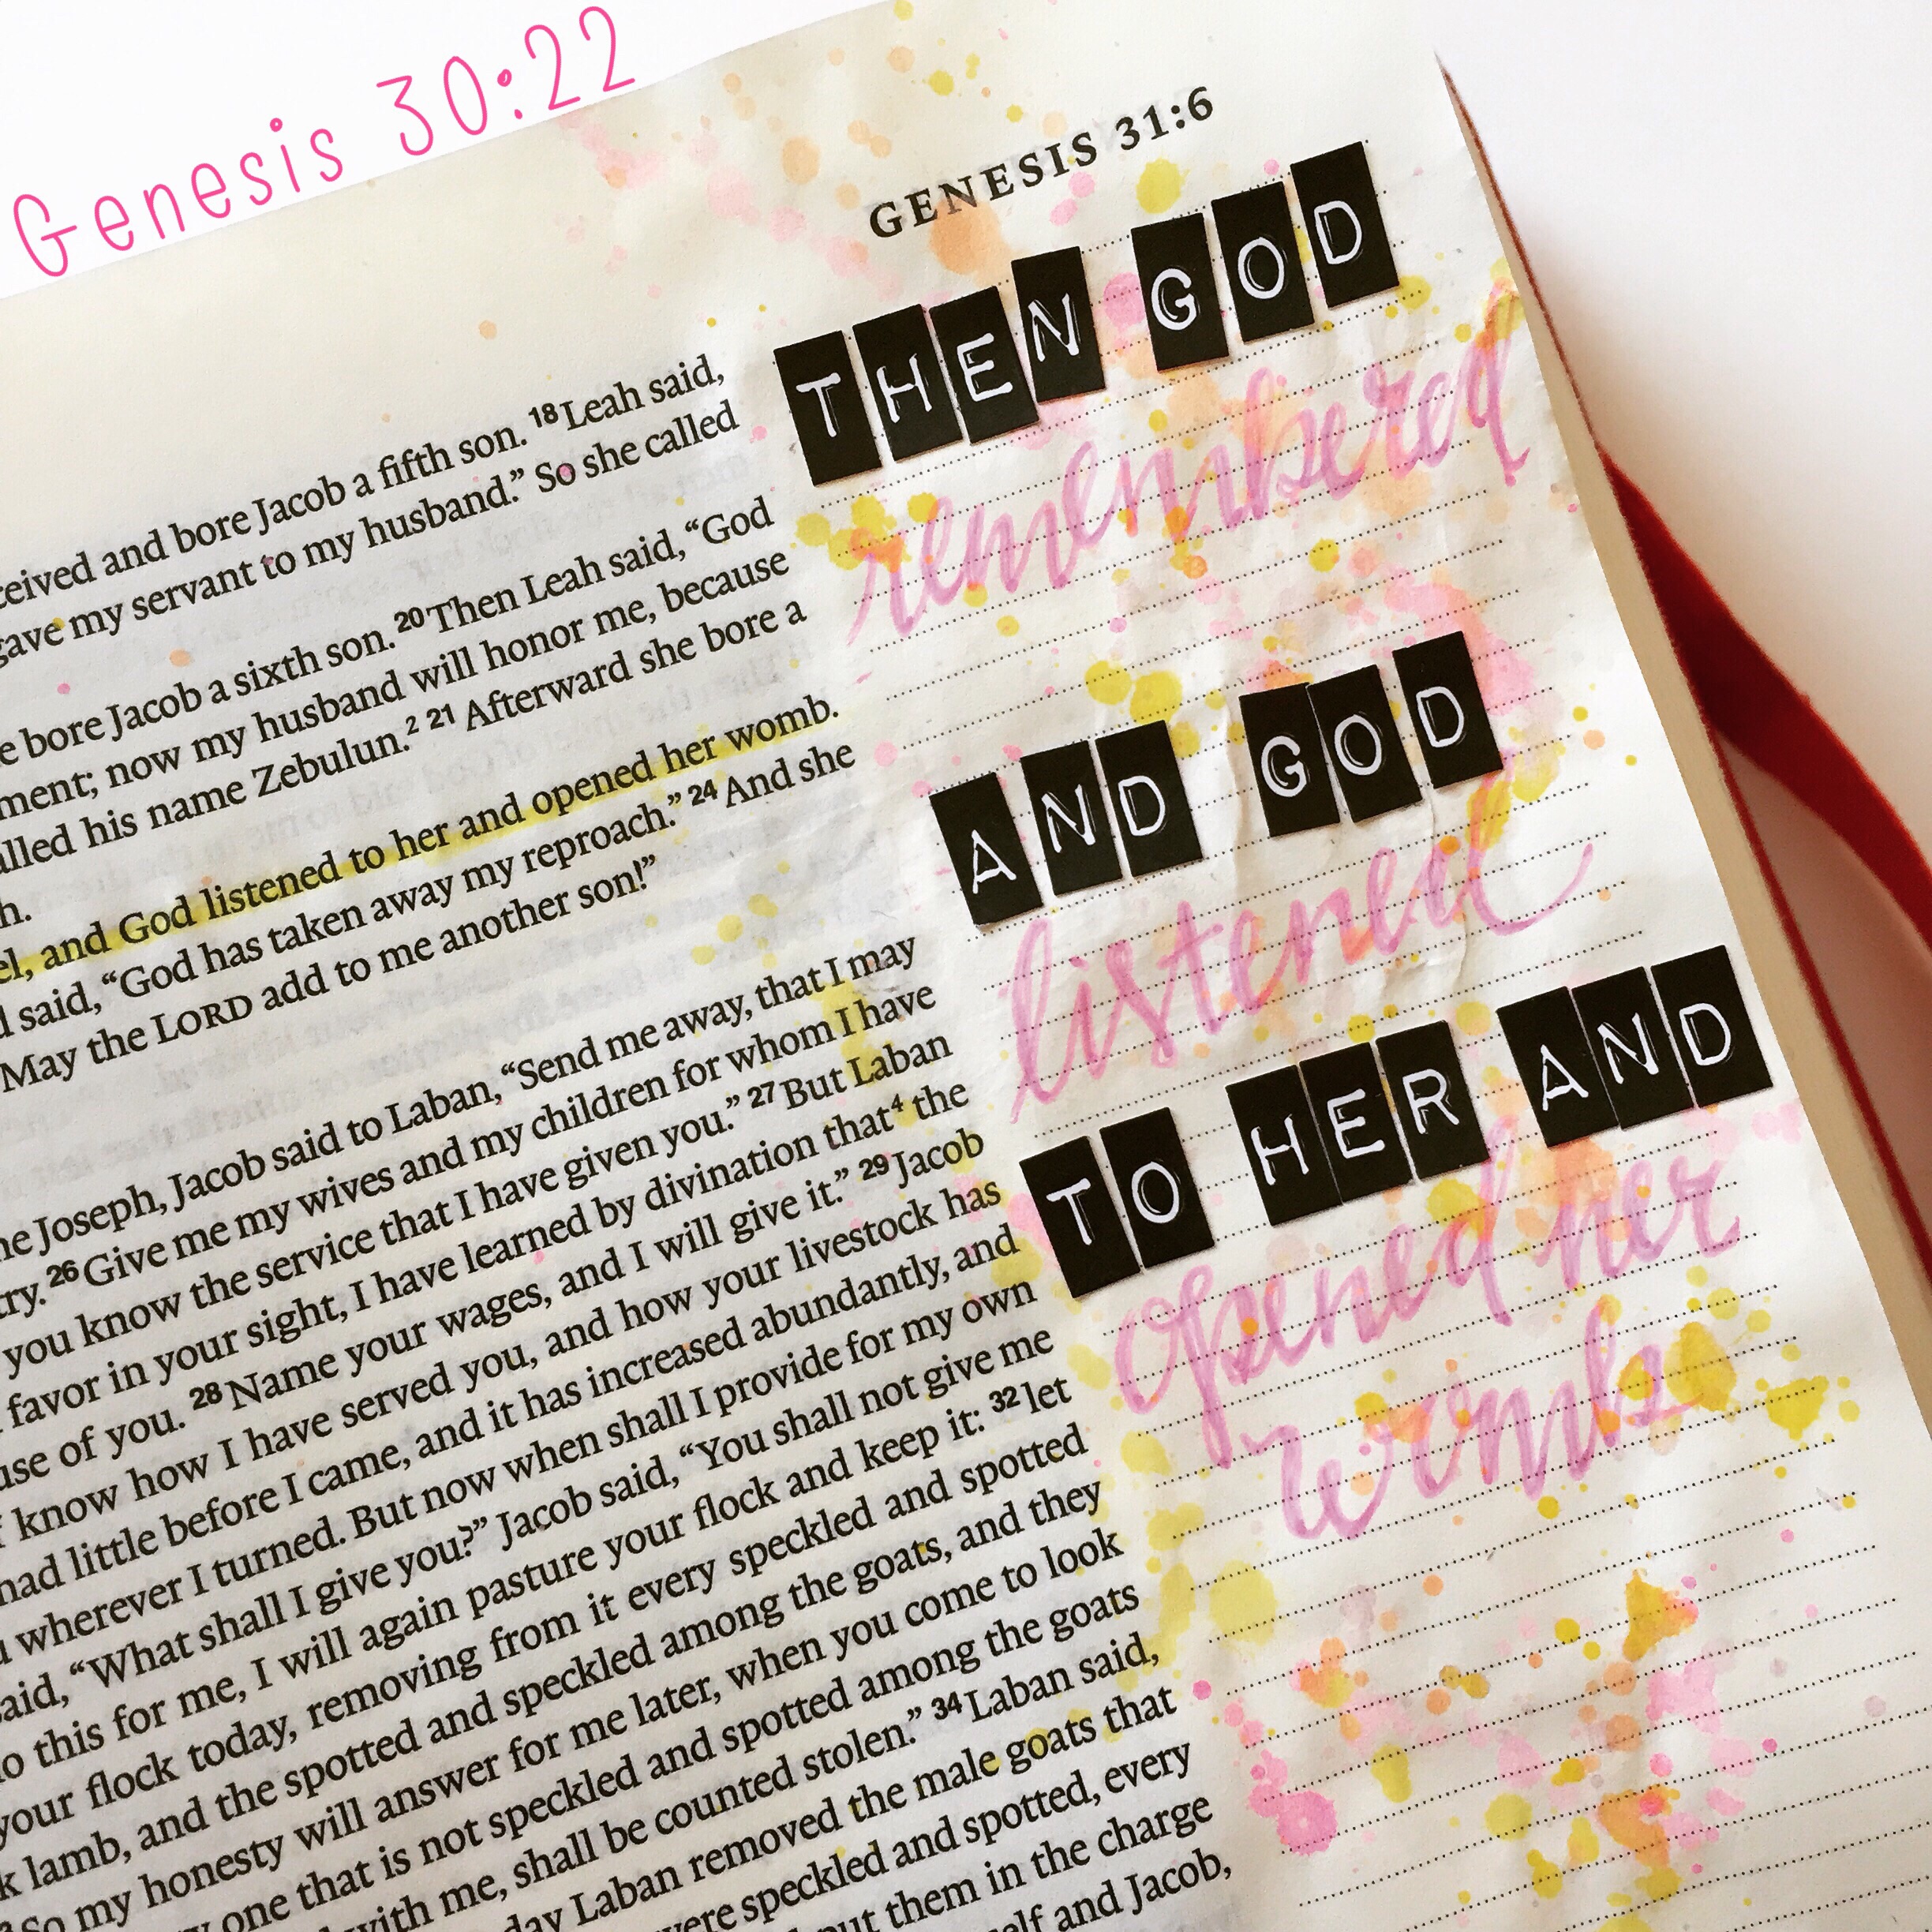 Genesis 30:22
GENESIS 31:6
THEN GOD
remembered
AND GOD
listened
TO HER AND
opened her
womb
and bore Jacob a fifth son. 18 Leah said,
gave my servant to my husband.” So she called
bore Jacob a sixth son. 20 Then Leah said, “God
now my husband will honor me, because
his name Zebulun.2 21 Afterward she bore a
and God listened to her and opened her womb.
said, “God has taken away my reproach.” 24 And she
May the LORD add to me another son!”
Joseph, Jacob said to Laban, “Send me away, that I may
26 Give me my wives and my children for whom I have
you know the service that I have given you.” 27 But Laban
favor in your sight, I have learned by divination that4 the
of you. 28 Name your wages, and I will give it.” 29 Jacob
know how I have served you, and how your livestock has
had little before I came, and it has increased abundantly, and
wherever I turned. But now when shall I provide for my own
said, “What shall I give you?” Jacob said, “You shall not give me
this for me, I will again pasture your flock and keep it: 32 let
your flock today, removing from it every speckled and spotted
lamb, and the spotted and speckled among the goats, and they
So my honesty will answer for me later, when you come to look
one that is not speckled and spotted among the goats
with me, shall be counted stolen.” 34 Laban said,
Laban removed the male goats that
were speckled and spotted, every
put them in the charge
and Jacob,